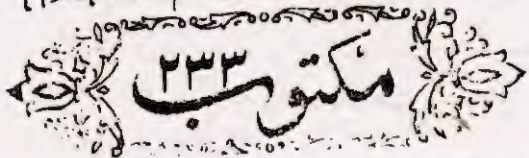 مکتوب ۲۳۳